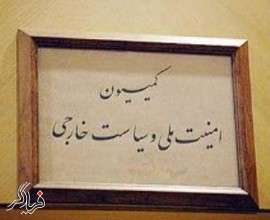 کمیسیون
امنیت ملی و سیاست خارجی
فریادگر